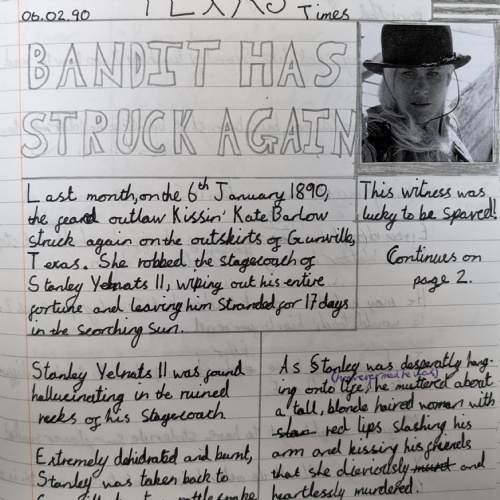 06.02.90
TEXAS Times
BANDIT HAS
STRUCK AGAIN
Last month, on the 6th January 1890,
the feard outlaw Kissin' Kate Barlow
struck again on the outskirts of Gunville,
Texas. She robbed the stagecoach of
Stanley Yelnats II, wiping out his entire
fortune and leaving him stranded for 17 days
in the scorching sun.
This witness was
lucky to be spared!
Continues on
page 2.
Stanley Yelnats II was found
hallucinating in the ruined
recks of his stagecoach
Extremely dehidrated and burnt,
Stanley was taken back to
As Stanley was desperatly hang-
ing onto life, he muttered about
a tall, blonde haired woman with
red lips slashing his
arm and kissing his friends
that she obviously and
heartlessly murdered.